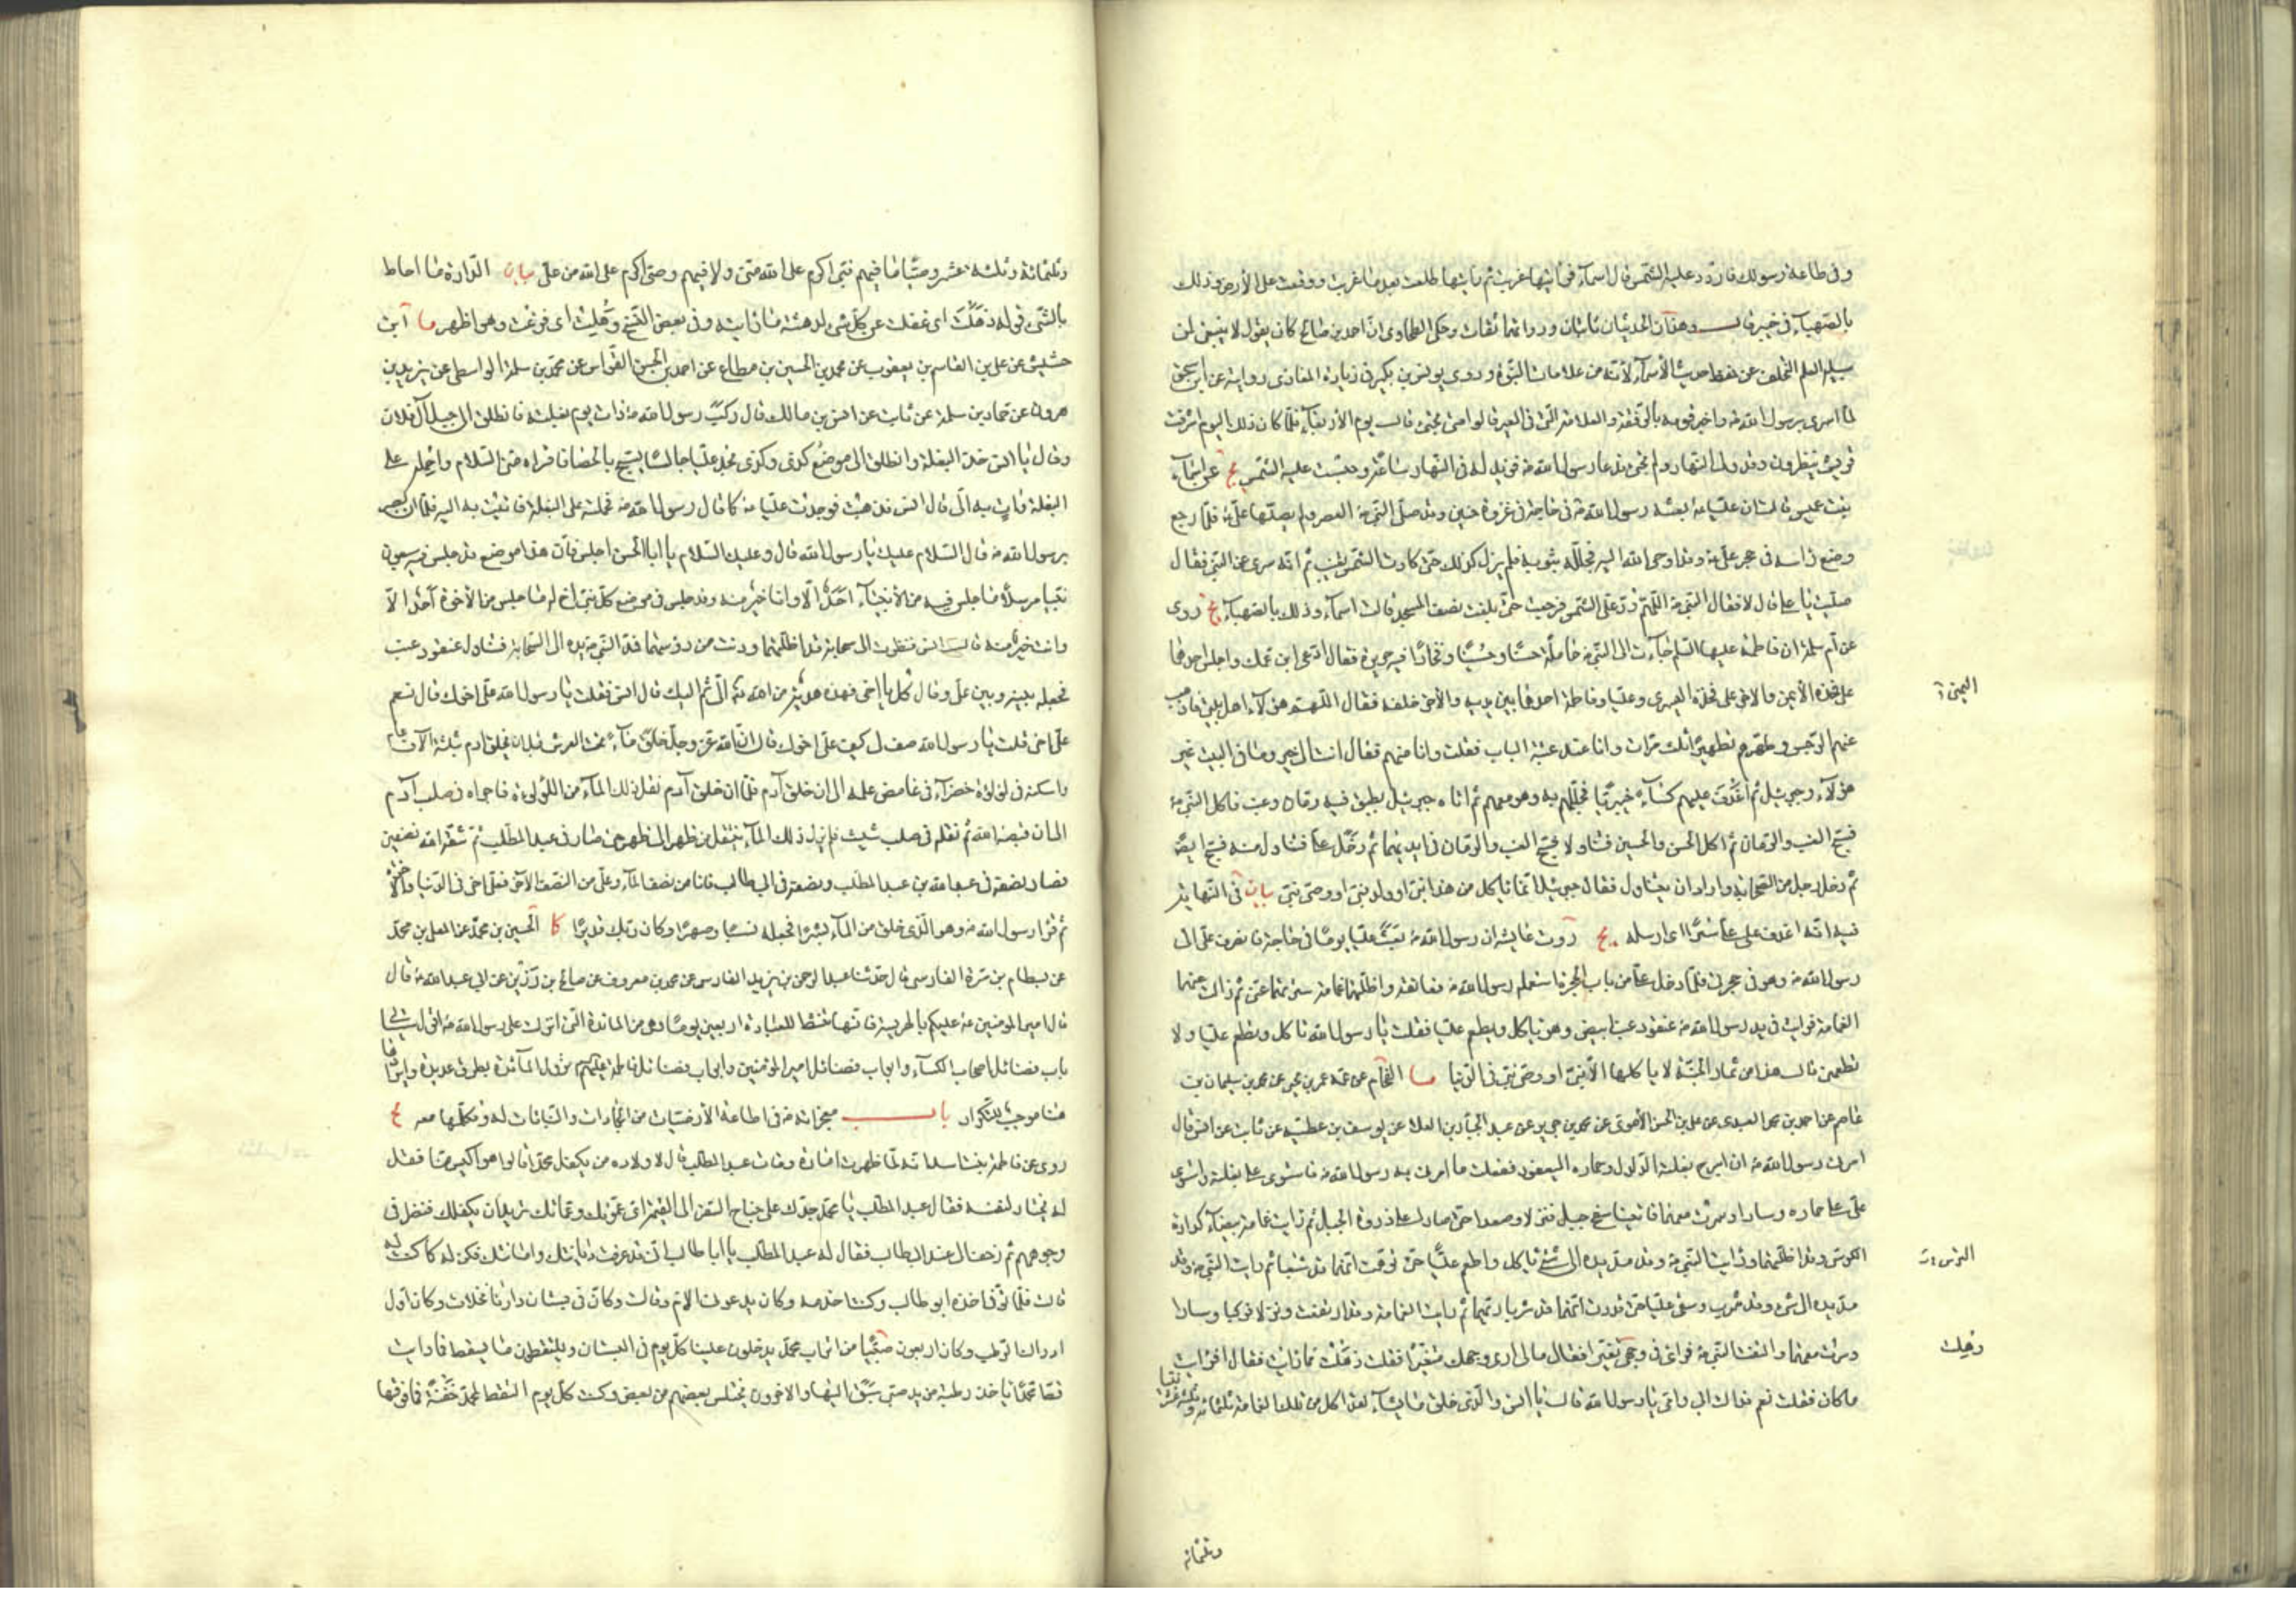 وفى طاعة رسولك فاردد عليه الشمس قال اسمآء فرأيتها غربت ثم رأيتها طلعت بعد ما غربت ووقعت على الأرض وذلك
بالصهبآء فى خيبر قال وهذان الحديثان ثابتان ورواتهما ثقات وحكى الطحاوى ان احمد بن صالح كان يقول لا ينبغى لمن
سبيله العلم التخلف عن حفظ حديث الأسمآء لأنّه من علامات النبوّة وروى يونس بن بكير فى زيادة المغازى رواية عن ابن اسحق
لما اسرى برسول الله ص واخبر قومه بالرفقة والعلامة التى فى العير قالوا متى تجئ قال يوم الأربعآء فلمّا كان ذلك اليوم اشرفت
قريش ينظرون وقد ولى النهار ولم تجئ فدعا رسول الله ص فزيد له فى النهار ساعة وحبست عليه الشمس يج عن اسمآء
بنت عميس قالت ان عليّا ع بعثه رسول الله ص فى حاجة فى غزوة حنين وقد صلّى النبى ص العصر ولم يصلّها علىّ ع فلمّا رجع
وضع رأسه فى حجر علىّ ع وقد اوحى الله اليه فجلّله بثوبه فلم يزل كذلك حتى كادت الشمس تغيب ثم انّه سرى عن النبى فقال
صلّيت يا على قال لا فقال النبى ص اللّهمّ ردّ على علىّ الشمس فرجعت حتّى بلغت نصف المسجد قالت اسمآء وذلك بالصهبآء يج روى
عن ام سلمة ان فاطمة عليها السلم جآءت الى النبى ص حاملة حسنًا وحسينًا وفخارًا فيه حريرة فقال ادعى ابن عمّك واجلس احدهما
على فخذه الأيمن والآخر على فخذه اليسرى وعليّا وفاطمة احدهما بين يديه والآخر خلفه فقال اللّهم هؤلآء اهل بيتى فاذهب
عنهم الرجس وطهرهم تطهيرًا ثلث مرّات وانا عند عتبة الباب فقلت وانا منهم فقال انت الى خير وما فى البيت غير
هؤلآء وجبرئيل ثم اغدف عليهم كسآء خيبريّا فجلّلهم به وهو معهم ثم اتاه جبرئيل بطبق فيه رمّان وعنب فاكل النبى ص
فسبّح العنب والرمان ثم اكل الحسن والحسين فتناولا فسبّح العنب والرمّان فى ايديهما ثم دخل علىّ فتناول منه فسبّح ايضًا
ثم دخل رجل من الصحابة واراد ان يتناول فقال جبرئيل انما يأكل من هذا نبىّ او ولد نبىّ او وصىّ نبىّ بيان فى النهاية
فيه انّه اغدف على علىّ سترًا اى ارسله يج روت عايشة ان رسول الله ص بعث عليّا يومًا فى حاجة فانصرف علىّ الى
رسول الله ص وهو فى حجرتى فلمّا دخل علىّ من باب الحجرة استقبله رسول الله ص فعانقه واظلّتهما غمامة سترتهما عنّى ثم زالت عنهما
الغمامة فرأيت فى يد رسول الله ص عنقود عنب ابيض وهو يأكل ويطعم عليّا فقلت يا رسول الله تأكل وتطعم عليّا ولا
تطعمنى قال هذا من ثمار الجنّة لا يأكلها الّا نبىّ او وصىّ نبىّ فى الدنيا ما الفحّام عن عمّه عمر بن يحيى عن محمد بن سليمان بن
عاصم عن احمد بن محمد العبدى عن على بن الحسن الأموى عن محمد بن جرير عن عبد الجبّار بن العلا عن يوسف بن عطيّة عن ثابت عن انس قال
امرنى رسول الله ص ان اسرج بغلته الدلدل وحماره اليعفور ففعلت ما امرنى به رسول الله ص فاستوى على بغلته واستوى
علىّ على حماره وسارا وسرت معهما فاتينا سفح جبل فنزلا وصعدا حتى صارا على ذروة الجبل ثم رأيت غمامة بيضآء كدارة
الكرسى وقد اظلّتهما ورأيت النبى ص وقد مدّ يده الى شئ يأكل واطعم عليًّا حتى توهّمت انهما قد شبعا ثم رأيت النبى ص وقد
مدّ يده الى شئ وقد شرب وسقى عليّا حتى قدرت انهما قد شربا ريّهما ثم رأيت الغمامة وقد ارتفعت ونزلا فركبا وسارا
وسرت معهما والتفت النبى ص فرأى فى وجهى تغيّرا فقال مالى ارى وجهك متغيّرًا فقلت ذهلت ممّا رأيت فقال افرأيت
ما كان فقلت نعم فداك ابى وامّى يا رسول الله قال يا انس والّذى خلق ما يشآء لقد اكل من تلك الغمامة ثلثمائة وثلثة عشر نبيّا
اليمنى
الترس
وذهلت
وثلثمائة
وثلثمائة وثلثة عشر وصيّا ما فيهم نبىّ اكرم على الله منى ولا فيهم وصىّ اكرم على الله من علىّ بيان الدّارة ما احاط
بالشئ قوله ذهلت اى غفلت عن كلّ شئ لدهشة ما رأيته وفى بعض النسخ وهلت اى فزعت وهو اظهر ما ابن
حشيش عن على بن القاسم بن يعقوب عن محمد بن الحسين بن مطاع عن احمد بن الحسن القوّاس عن محمد بن سلمة الواسطى عن يزيد بن
هرون عن حماد بن سلمة عن ثابت عن انس بن مالك قال ركب رسول الله ص ذات يوم بغلته فانطلق الى جبل آل فلان
وقال يا انس خذ البغلة وانطلق الى موضع كذى وكذى تجد عليّا جالسًا يسبّح بالحصا فاقرأه منى السّلام واحمله على
البغلة وات به الىّ قال انس فذهبت فوجدت عليّا ع كما قال رسول الله ص فحملته على البغلة فاتيت به اليه فلمّا ان بصر
برسول الله ص قال السّلام عليك يا رسول الله قال وعليك السّلام يا ابا الحسن اجلس فان هذا موضع قد جلس فيه سبعون
نبيّا مرسلًا ما جلس فيه من الأنبيآء احدٌ الّا وانا خير منه وقد جلس فى موضع كلّ نبىّ اخ له ما جلس من الأخوة احد الّا
وانت خير منه قال انس فنظرت الى سحابة قد اظلّتهما ودنت من رؤسهما فمدّ النبى ص يده الى السّحابة فتناول عنقود عنب
فجعله بينه وبين علىّ وقال كل يا اخى فهذه هديّة من الله تع الىّ ثم اليك قال انس فقلت يا رسول الله علىّ اخوك قال نعم
علىّ اخى قلت يا رسول الله صف لى كيف علىّ اخوك قال انّ الله عزّ وجلّ خلق مآء تحت العرش قبل ان يخلق آدم بثلثة الآف عام
واسكنه فى لؤلؤة خضرآء فى غامض علمه الى ان خلق آدم فلمّا ان خلق آدم نقل ذلك المآء من اللؤلؤة فاجراه فى صلب آدم
الى ان قبضه الله ثم نقله فى صلب شيث فلم يزل ذلك المآء ينتقل من ظهر الى ظهر حتى صار فى عبد المطّلب ثم شقّه الله نصفين
فصار نصفه فى عبد الله بن عبد المطلب ونصفه فى ابى طالب فانا من نصف المآء وعلىّ من النصف الآخر فعلىّ اخى فى الدّنيا والآخرة
ثم قرأ رسول الله ص وهو الّذى خلق من المآء بشرًا فجعله نسبًا وصهرًا وكان ربّك قديرًا كا الحسين بن محمد عن المعلّى بن محمّد
عن بسطام بن مرة الفارسى قال حدّثنا عبد الرحمن بن يزيد الفارسى عن محمد بن معروف عن صالح بن رزين عن ابى عبد الله ع قال
قال امير المؤمنين ع عليكم بالهريسة فانّها تنشّط للعبادة اربعين يومًا وهى من المائدة التى انزلت على رسول الله ص اقول سيأتى فى
باب فضائل اصحاب الكسآء وابواب فضائل امير المؤمنين وابواب فضائل فاطمة عليهم السلم نزول المآئدة بطرق عديدة وايرادها
هنا موجب للتكرار باب معجزاته ص فى اطاعة الأرضيات من الجمادات والنباتات له وتكلّمها معه يج
روى عن فاطمة بنت اسد انّه لمّا ظهرت امارة وفات عبد المطلب قال لاولاده من يكفل محمّدًا قالوا هو اكيس منا فقل
له يختار لنفسه فقال عبد المطلب يا محمّد جدّك على جناح السّفر الى القيمة اىّ عمومتك وعمّاتك تريد ان يكفلك فنظر فى
وجوههم ثم زحف الى عند ابى طالب فقال له عبد المطلب يا ابا طالب انى قد عرفت ديانتك وامانتك فكن له كما كنت له
قالت فلمّا توفى اخذه ابو طالب وكنت اخدمه وكان يدعونى الامّ وقالت وكان فى بستان دارنا نخلات وكان اول
ادراك الرطب وكان اربعون صبيًّا من اتراب محمّد يدخلون علينا كلّ يوم فى البستان ويلتقطون ما يسقط فما رأيت
قطّ محمّدًا يأخذ رطبة من يد صبىّ سبق اليها والاخرون يختلس بعضهم من بعض وكنت كلّ يوم التقط لمحمّد حفنة فما فوقها